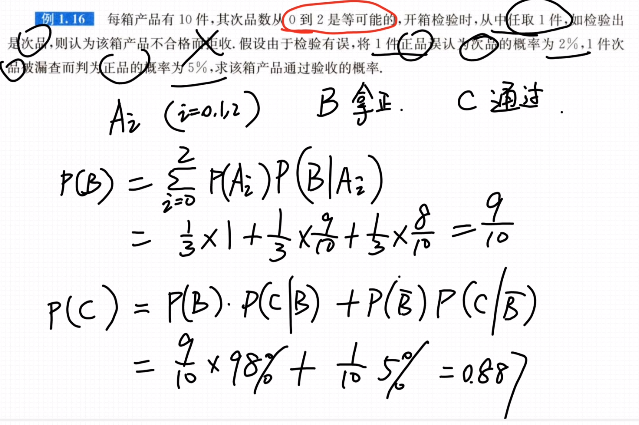 例 1.16 每箱产品有 10 件,其次品数从 0 到 2 是等可能的,开箱检验时,从中任取 1 件,如检验出
是次品,则认为该箱产品不合格而拒收.假设由于检验有误,将 1 件正品误认为次品的概率为 2%,1 件次
品被漏查而判为正品的概率为 5%,求该箱产品通过验收的概率.
Ai (i=0,1,2) B 拿正. C 通过.
P(B) = ∑_{i=0}^{2} P(Ai) P(B|Ai)
= 1/3 × 1 + 1/3 × 9/10 + 1/3 × 8/10 = 9/10
P(C) = P(B)·P(C|B) + P(B̄) P(C|B̄)
= 9/10 × 98% + 1/10 5% = 0.887